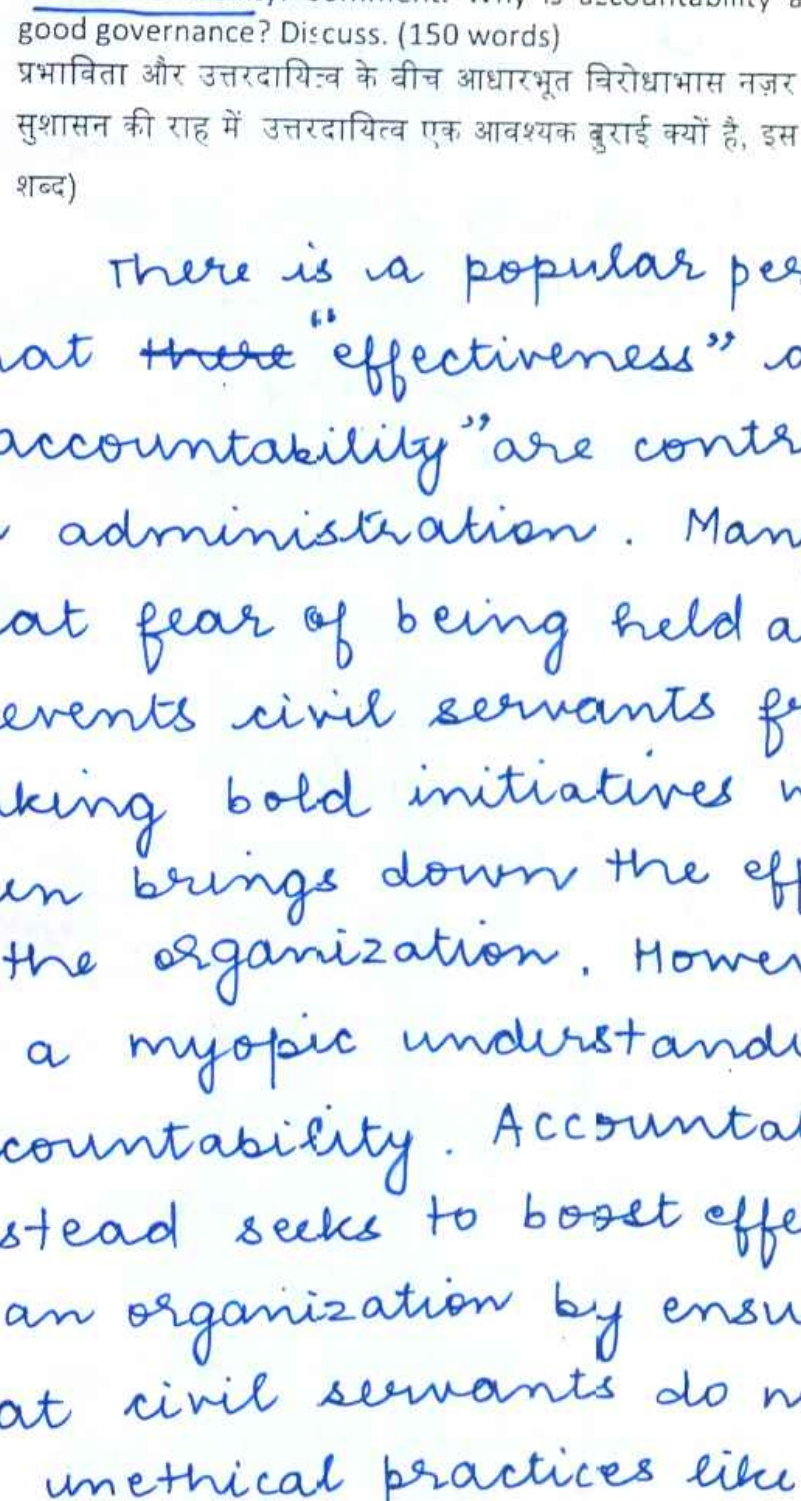 good governance? Discuss. (150 words)
प्रभाविता और उत्तरदायित्व के बीच आधारभूत विरोधाभास नज़र
सुशासन की राह में उत्तरदायित्व एक आवश्यक बुराई क्यों है, इस
शब्द)
There is a popular per
at there "effectiveness"
accountability" are contr
administration. Man
at fear of being held a
events civil servants fr
king bold initiatives
en brings down the eff
the organization. Howev
a myopic understandi
countability. Accounta
stead seeks to boost effe
an organization by ensu
at civil servants do n
unethical practices like